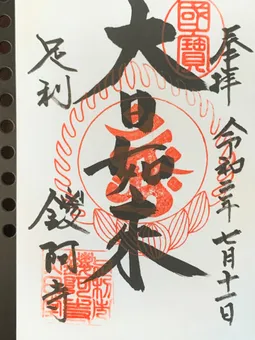 國寶
奉拝
令和二年七月十一日
大日如来
足利
鑁阿寺